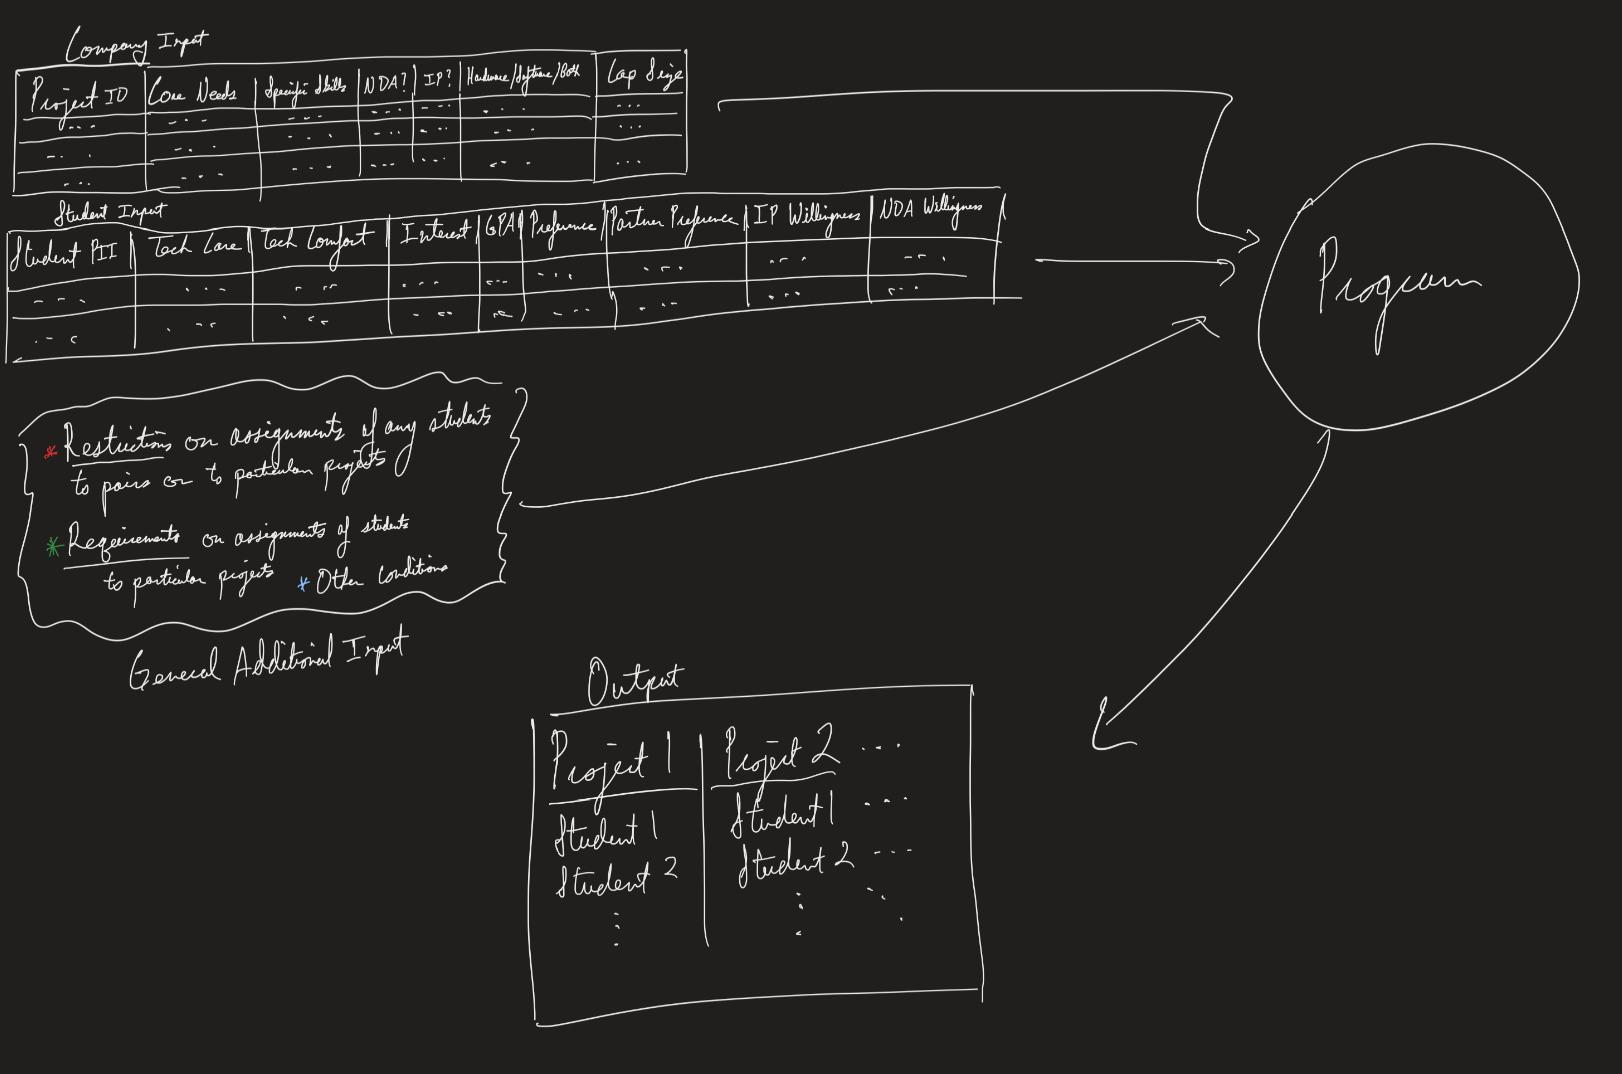 Company Input
Project ID | Core Needs | Specific Skills | NDA? | IP? | Hardware/Software/Both | Cap Size
... | ... | ... | ... | ... | ... | ...
... | ... | ... | ... | ... | ... | ...
... | ... | ... | ... | ... | ... | ...
Student Input
Student PII | Tech Core | Tech Comfort | Interest | GPA | Preference | Partner Preference | IP Willingness | NDA Willingness
... | ... | ... | ... | ... | ... | ... | ... | ...
... | ... | ... | ... | ... | ... | ... | ... | ...
Program
* Restrictions on assignments of any students
to pairs or to particular projects
* Requirements on assignments of students
to particular projects * Other Conditions
General Additional Input
Output
Project 1 | Project 2 ...
Student 1 | Student 1 ...
Student 2 | Student 2 ...